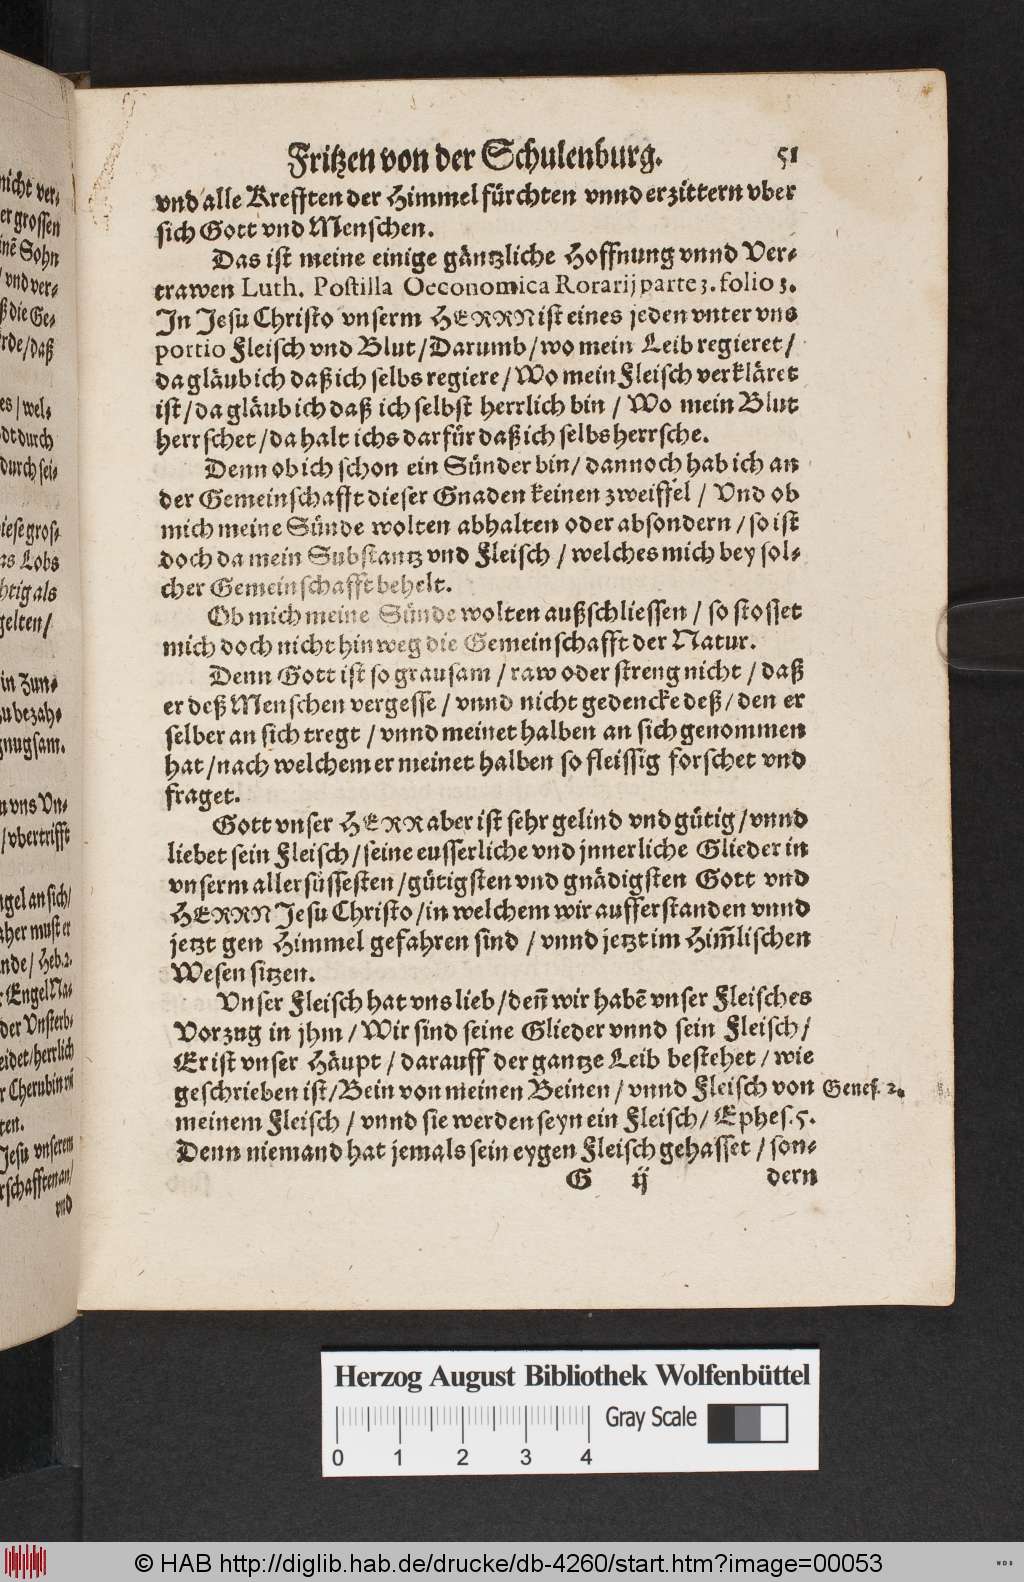 nicht ver-
er grossen
inē Sohn
/ vnd ver-
ß die Ge-
rde / daß
es / wel-
dt durch
durch sei-
iese gros-
as Lobs
htig als
gelten /
in Zun-
zu bezah-
gnugsam.
n vns Vn-
/ vbertrifft
ngel an sich /
aher must er
nde / Heb. 2.
r Engel Na-
der Vnsterb-
eidet / herrlich
r Cherubin vñ
ten.
Jesu vnserem
rschafften an /
vnd
Fritzen von der Schulenburg. 51
vnd alle Krefften der Himmel fürchten vnnd erzittern vber
sich Gott vnd Menschen.
Das ist meine einige gäntzliche Hoffnung vnnd Ver-
trawen Luth. Postilla Oeconomica Rorarij parte 3. folio 3.
In Jesu Christo vnserm HERRN ist eines jeden vnter vns
portio Fleisch vnd Blut / Darumb / wo mein Leib regieret /
da gläub ich daß ich selbs regiere / Wo mein Fleisch verkläret
ist / da gläub ich daß ich selbst herrlich bin / Wo mein Blut
herrschet / da halt ichs darfür daß ich selbs herrsche.
Denn ob ich schon ein Sünder bin / dannoch hab ich an
der Gemeinschafft dieser Gnaden keinen zweiffel / Vnd ob
mich meine Sünde wolten abhalten oder absondern / so ist
doch da mein Substantz vnd Fleisch / welches mich bey sol-
cher Gemeinschafft behelt.
Ob mich meine Sünde wolten außschliessen / so stosset
mich doch nicht hinweg die Gemeinschafft der Natur.
Denn Gott ist so grausam / raw oder streng nicht / daß
er deß Menschen vergesse / vnnd nicht gedencke deß / den er
selber an sich tregt / vnnd meinet halben an sich genommen
hat / nach welchem er meinet halben so fleissig forschet vnd
fraget.
Gott vnser HERR aber ist sehr gelind vnd gütig / vnnd
liebet sein Fleisch / seine eusserliche vnd jnnerliche Glieder in
vnserm allersüssesten / gütigsten vnd gnädigsten Gott vnd
HERRN Jesu Christo / in welchem wir aufferstanden vnnd
jetzt gen Himmel gefahren sind / vnnd jetzt im Him̃lischen
Wesen sitzen.
Vnser Fleisch hat vns lieb / deñ wir habē vnser Fleisches
Vorzug in jhm / Wir sind seine Glieder vnnd sein Fleisch /
Er ist vnser Häupt / darauff der gantze Leib bestehet / wie
geschrieben ist / Bein von meinen Beinen / vnnd Fleisch von Genes. 2.
meinem Fleisch / vnnd sie werden seyn ein Fleisch / Ephes. 5.
Denn niemand hat jemals sein eygen Fleisch gehasset / son-
G ij dern
Herzog August Bibliothek Wolfenbüttel
Gray Scale
0 1 2 3 4
© HAB http://diglib.hab.de/drucke/db-4260/start.htm?image=00053